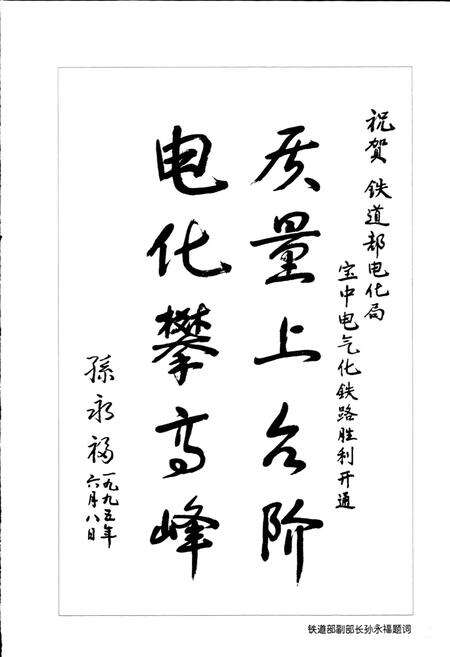 祝贺 铁道部电化局
宝中电气化铁路胜利开通
质量上台阶
电化攀高峰
孫永福
一九九五年
六月八日
铁道部副部长孙永福题词